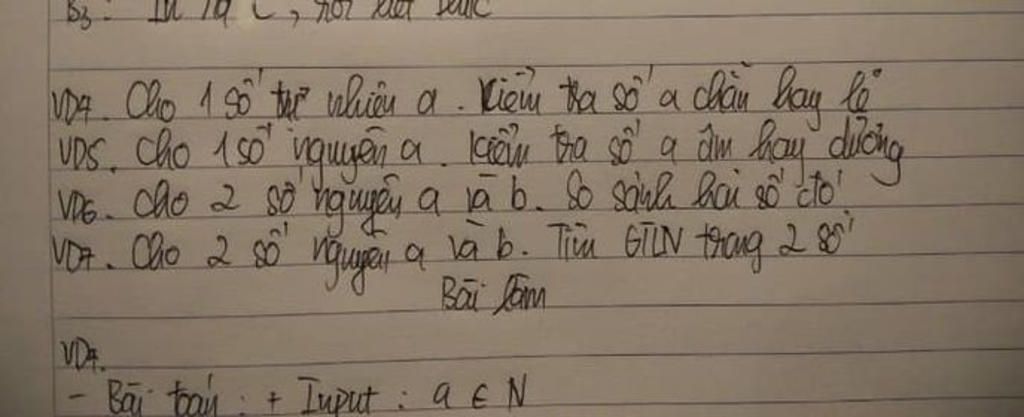 B3: In ra C, rồi kết thúc
VD4. Cho 1 số tự nhiên a. Kiểm tra số a chẵn hay lẻ
VD5. Cho 1 số nguyên a. Kiểm tra số a âm hay dương
VD6. Cho 2 số nguyên a và b. So sánh hai số đó
VD7. Cho 2 số nguyên a và b. Tìm GTLN trong 2 số
Bài làm
VD4.
- Bài toán: + Input: a ∈ N